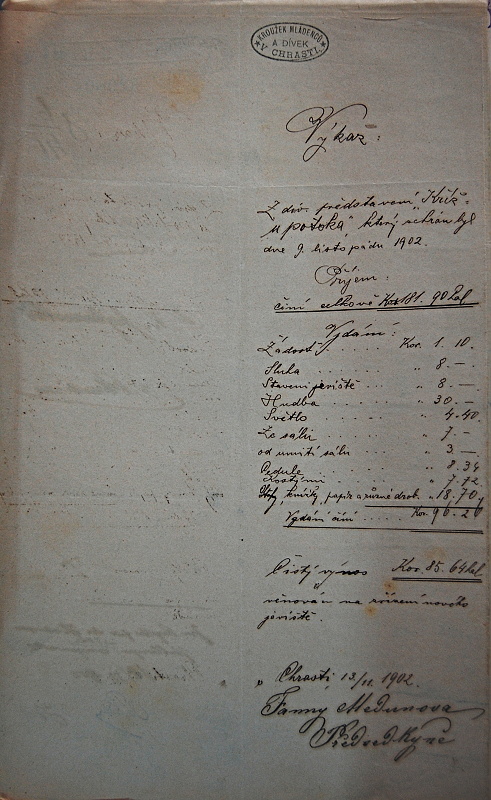 KROUŽEK MLÁDENCŮ
A DÍVEK
V CHRASTI.
Výkaz:
Z div. představení "Kříž
u potoka" který sehrán byl
dne 9. listopádu 1902.
Příjem:
činí celkově Kor 181. 90 hal
Vydání:
Žádost . . . . Kor. 1. 10.
Sluha . . . . " 8. —
Stavení jeviště . . . " 8. —
Hudba . . . . " 30. —
Světlo . . . . " 4.40.
Ze sálu . . . . " 7. —
od umití sálu . . " 3. —
Cedule . . . . " 8. 34
Kostýmy . . . . " 7.72
kvíty, papír a různé drob. " 18.70
Vydání činí . . . . Kor. 96. 26
Čistý výnos Kor. 85. 64 hal
věnován na zřízení nového
jeviště.
V Chrasti 13/11. 1902.
Fanny Medunova
Předsedkyně